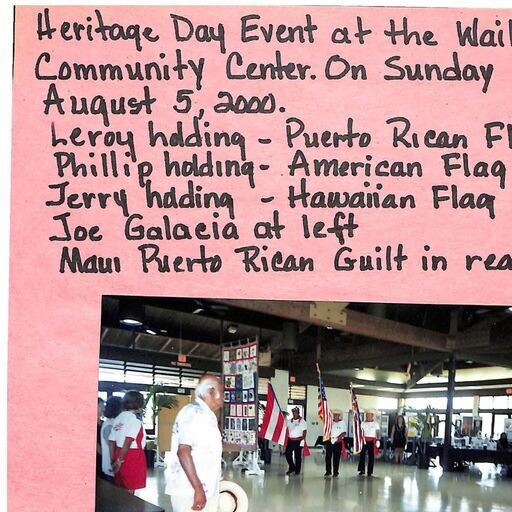 Heritage Day Event at the Wail
Community Center. On Sunday
August 5, 2000.
Leroy holding - Puerto Rican Fl
Phillip holding - American Flag
Jerry holding - Hawaiian Flag
Joe Galacia at left
Maui Puerto Rican Guilt in rea